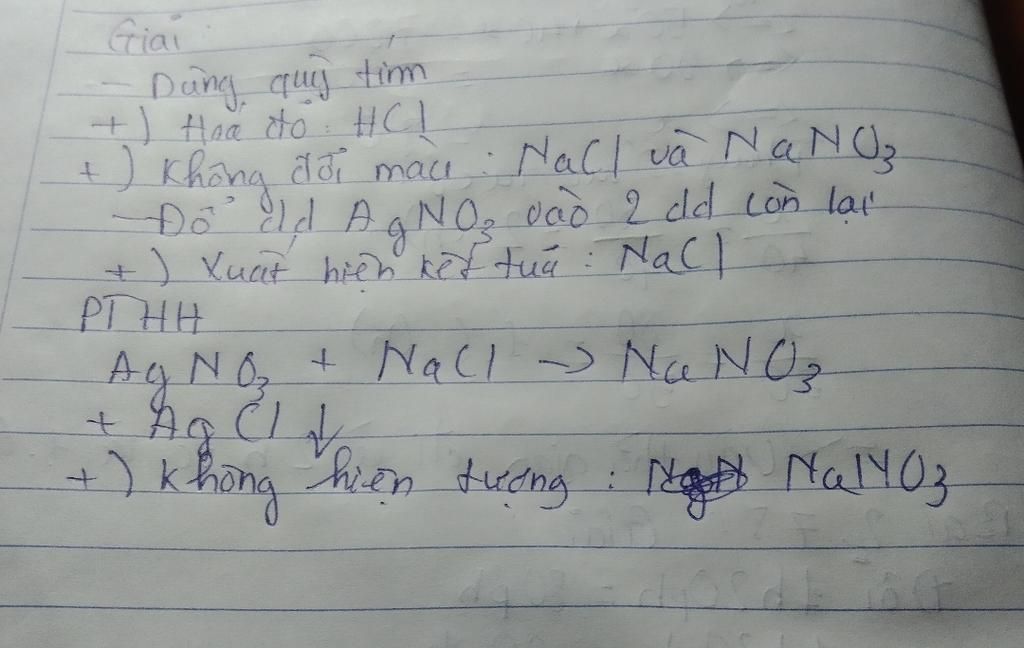 Giải
- Dùng quỳ tím
+) Hoá đỏ : HCl
+) Không đổi màu : NaCl và NaNO3
- Đổ dd AgNO3 vào 2 dd còn lại
+) Xuất hiện kết tuả : NaCl
PTHH
AgNO3 + NaCl → NaNO3
+ AgCl ↓
+) Không hiện tượng : NaNO3